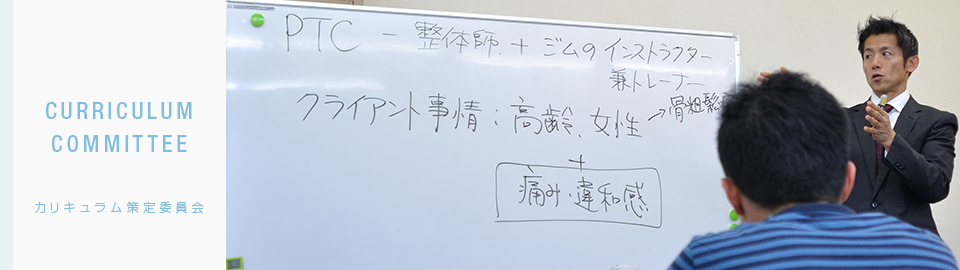 CURRICULUM
COMMITTEE
カリキュラム策定委員会
PTC - 整体師 + ジムのインストラクター
兼トレーナー
クライアント事情:高齢、女性 → 骨粗鬆
+
痛み・違和感